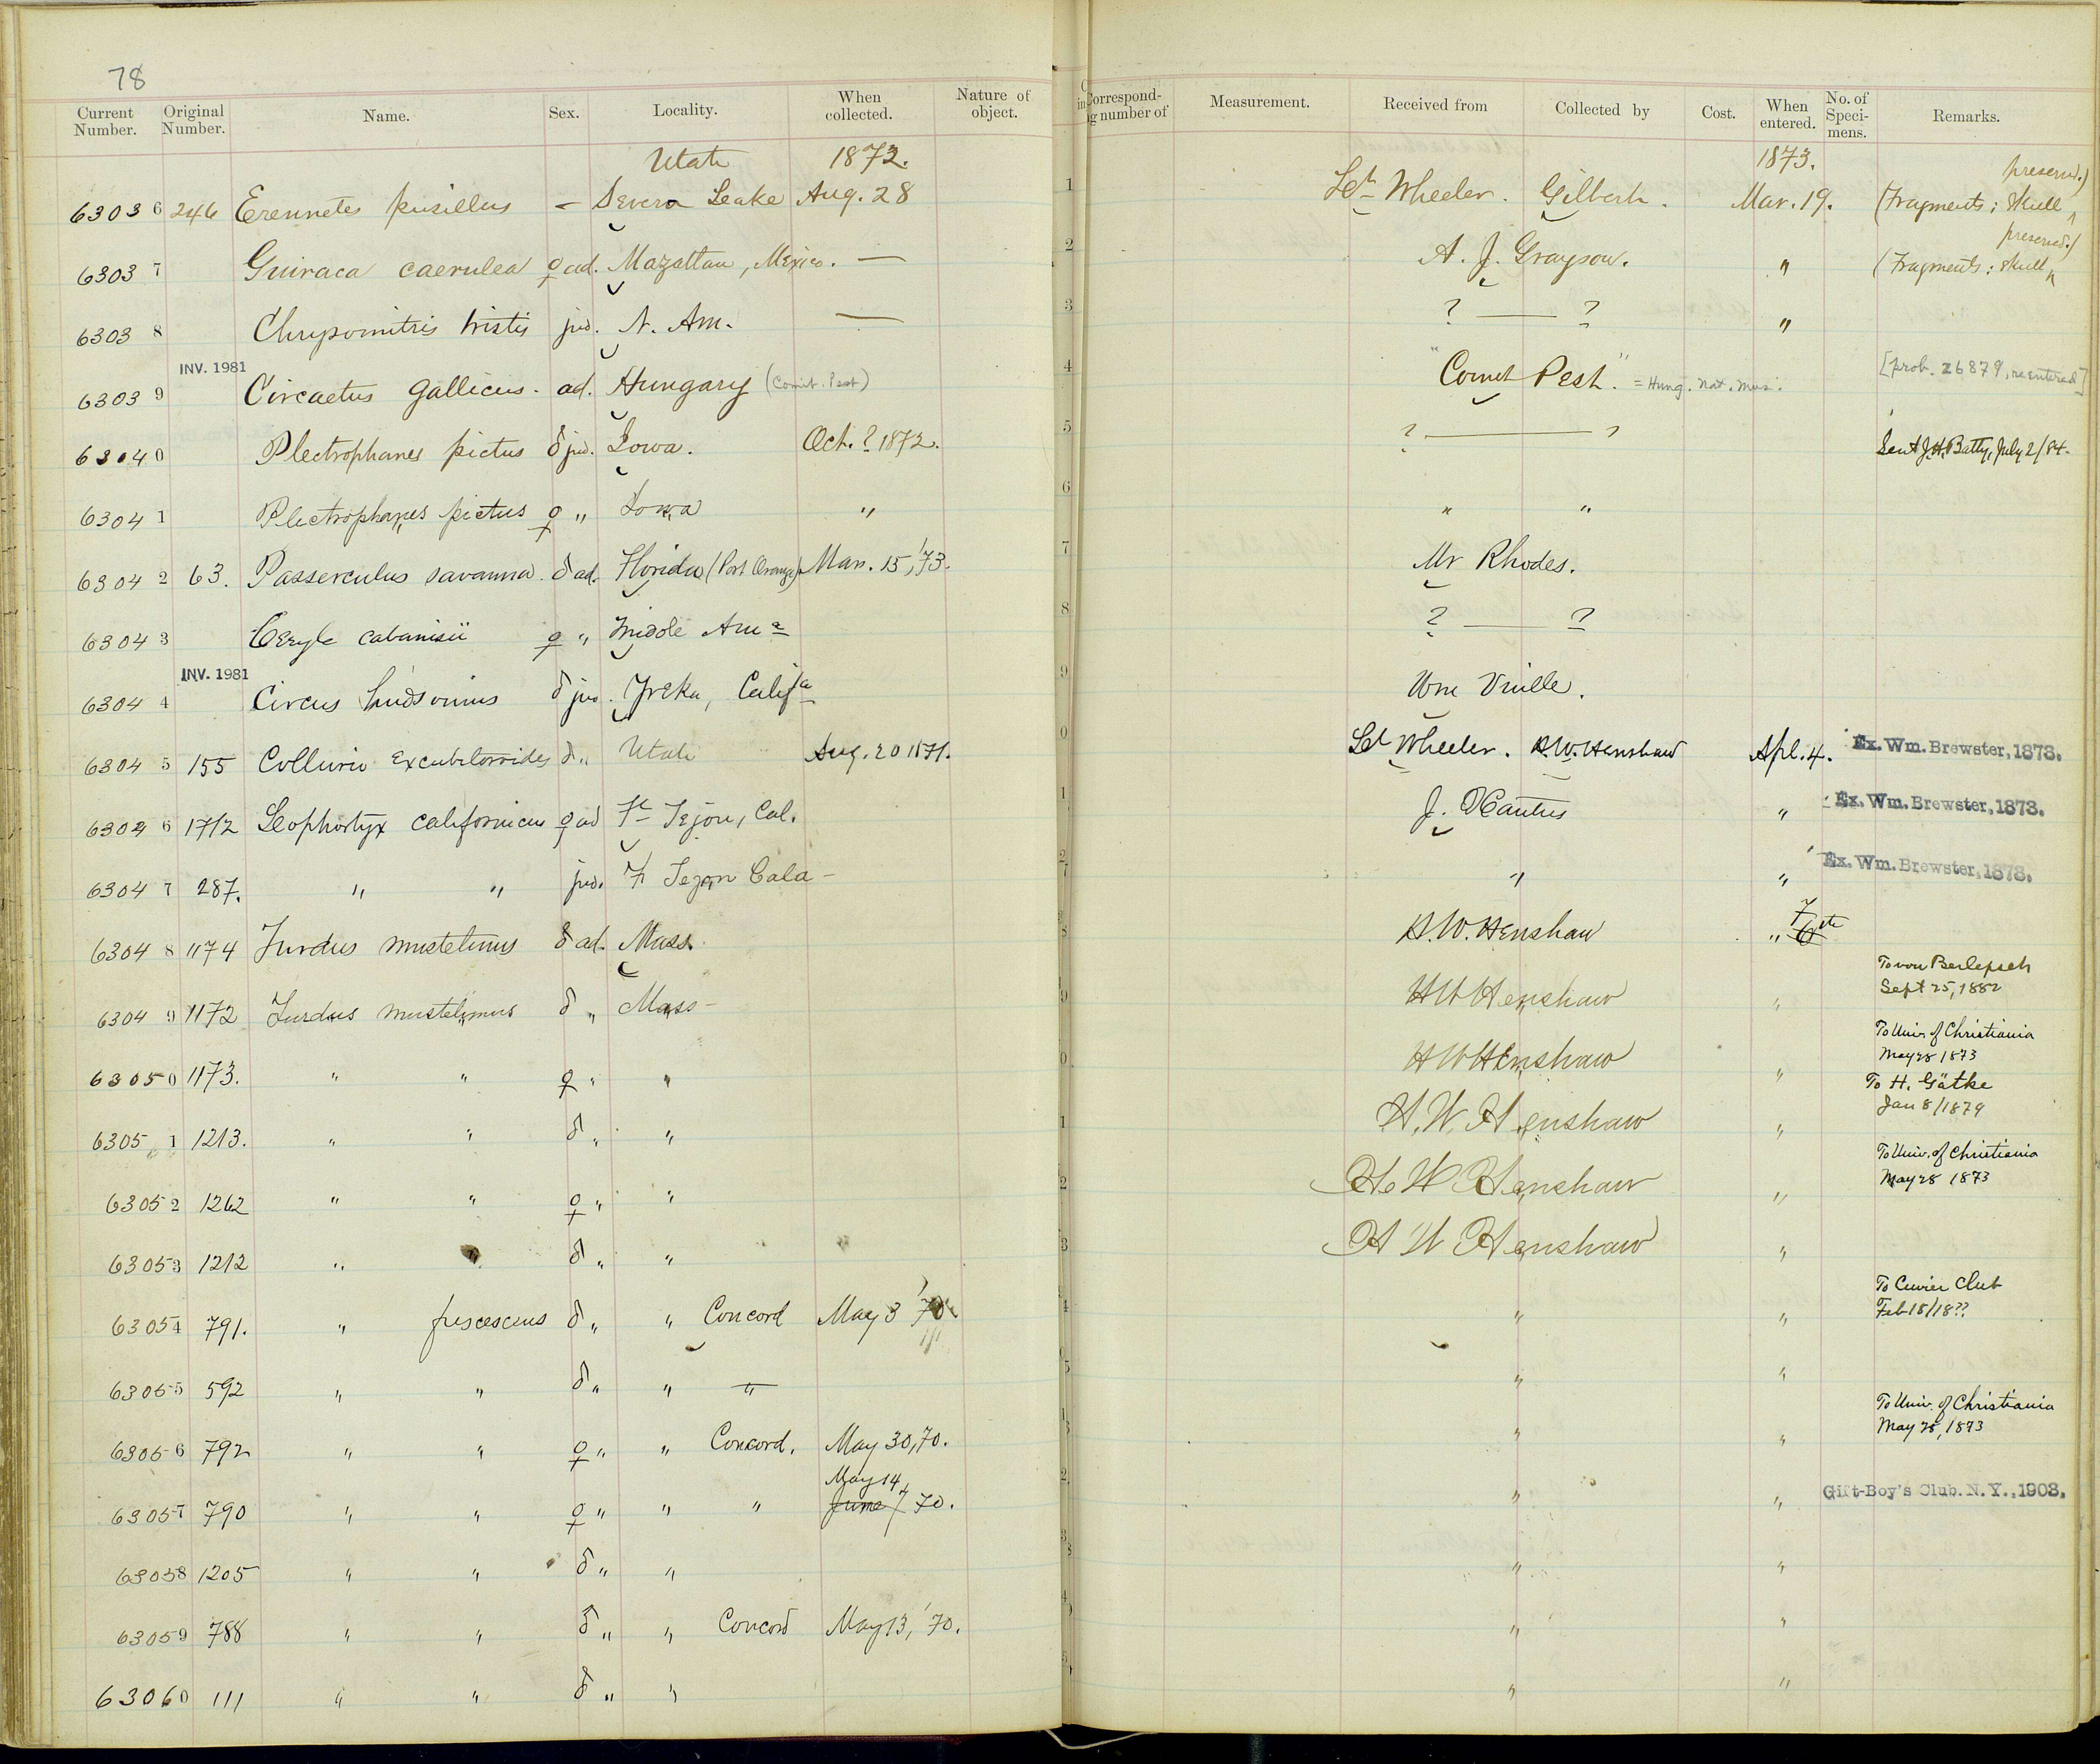 78
Current Number. Original Number. Name. Sex. Locality. When collected. Nature of object. Correspond-ing number of Measurement. Received from Collected by Cost. When entered. No. of Speci-mens. Remarks.
Utah 1872. 1873. preserved.)
6303 6 246 Ereunetes pusillus – Sevier Leake Aug. 28 1 Lt Wheeler. Gilbert. Mar. 19. (Fragments; Skull ^
preserved.)
6303 7 Guiraca caerulea ♀ ad. Mazatlan, Mexico. — 2 A. J. Grayson. " (Fragments; Skull ^
6303 8 Chrysomitris tristis juv. N. Am. — 3 ? — ? "
INV. 1981
6303 9 Circaetus gallicus. ad. Hungary (Comit. Pest) 4 "Comit Pesth." = Hung. Nat. Mus. [prob. 26879, reentered]
6304 0 Plectrophanes pictus ♂ juv. Iowa. Oct. ? 1872. 5 ? — ? Sent J.H. Batty, July 2/84.
6304 1 Plectrophanes pictus ♀ " Iowa " 6 " "
6304 2 63. Passerculus savanna. ♂ ad. Florida (Port Orange) Mar. 15, '73. 7 Mr Rhodes.
6304 3 Ceryle cabanisii ♀ " Middle Ama 8 ? — ?
INV. 1981
6304 4 Circus hudsonius ♂ juv. Yreka, Califa 9 Wm Vuille.
6304 5 155 Collurio excubitoroides ♂ " Utah Aug. 20 1871. 0 Lt Wheeler. H.W. Henshaw Apl. 4. Ex. Wm. Brewster, 1873.
6304 6 1712 Lophortyx californicus ♀ ad Ft Tejon, Cal. 1 J. Xantus " Ex. Wm. Brewster, 1873.
6304 7 287. " " juv. Ft Tejon Cala – " " Ex. Wm. Brewster, 1873.
6304 8 1174 Turdus mustelinus ♂ ad. Mass. H.W. Henshaw " 6 7th
To von Berlepsch
6304 9 1172 Turdus mustelinus ♂ " Mass – 9 HW Henshaw " Sept 25, 1882
To Univ. of Christiania
6305 0 1173. " " ♀ " " 0 HW Henshaw " May 28 1873
To H. Gätke
6305 1 1213. " " ♂ " " 1 H. W. Henshaw " Jan 8/1879
To Univ. of Christiania
6305 2 1262 " " ♀ " " 2 H. W Henshaw " May 28 1873
6305 3 1212 " " ♂ " " 3 H W Henshaw "
To Cuvier Club
6305 4 791. " fuscescens ♂ " " Concord May 3 '70. 4 " " Feb 18/18??
6305 5 592 " " ♂ " " " " "
To Univ. of Christiania
6305 6 792 " " ♀ " " Concord. May 30, 70. " " May 28, 1873
May 14,
6305 7 790 " " ♀ " " " June / 70. " " Gift-Boy's Club. N.Y., 1903.
6305 8 1205 " " ♂ " " " "
6305 9 788 " " ♂ " " Concord May 13, '70. " "
6306 0 111 " " ♂ " " " "